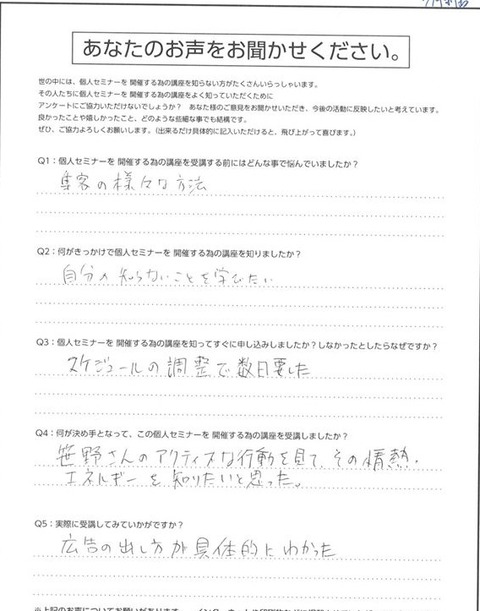 あなたのお声をお聞かせください。
世の中には、個人セミナーを 開催する為の講座を知らない方がたくさんいらっしゃいます。
その人たちに個人セミナーを 開催する為の講座をよく知っていただくために
アンケートにご協力いただけないでしょうか? あなた様のご意見をお聞かせいただき、今後の活動に反映したいと考えています。
良かったことや嬉しかったこと、どのような些細な事でも結構です。
ぜひ、ご協力よろしくお願いします。(出来るだけ具体的に記入いただけると、飛び上がって喜びます。)
Q1:個人セミナーを 開催する為の講座を受講する前にはどんな事で悩んでいましたか?
集客の様々な方法
Q2:何がきっかけで個人セミナーを 開催する為の講座を知りましたか?
自分の知らないことを学びたい
Q3:個人セミナーを 開催する為の講座を知ってすぐに申し込みしましたか?しなかったとしたらなぜですか?
スケジュールの調整で数日要した
Q4:何が決め手となって、この個人セミナーを 開催する為の講座を受講しましたか?
笹野さんのアクティブな行動を見て、その情熱・
エネルギーを知りたいと思った。
Q5:実際に受講してみていかがですか?
広告の出し方が具体的にわかった